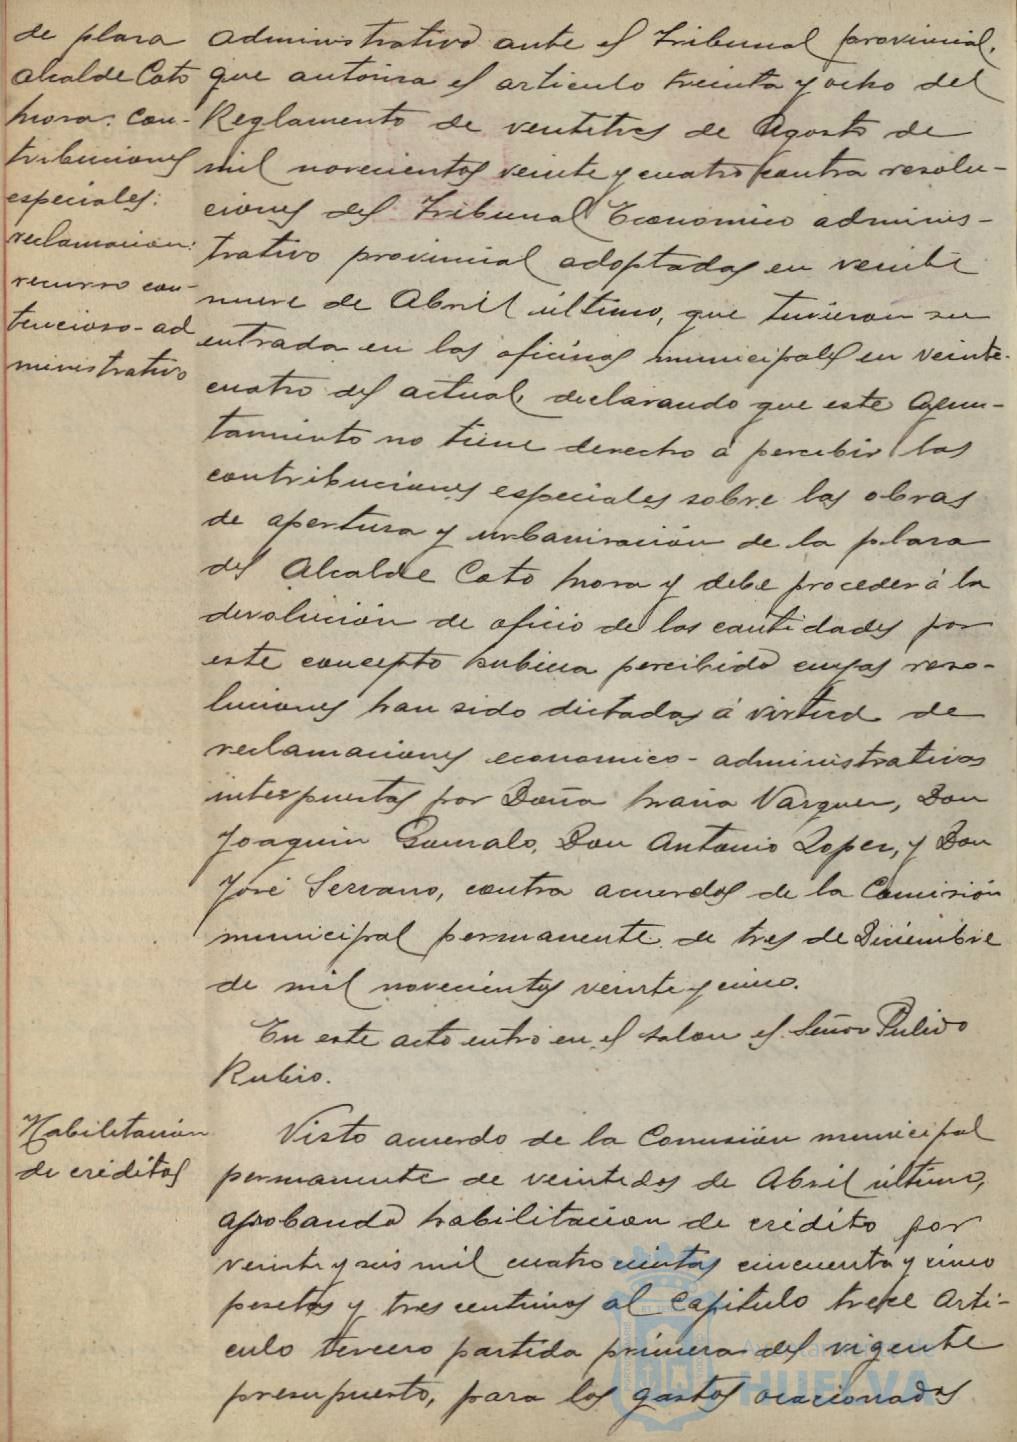 de plaza
alcalde Coto
Mora: con-
tribuciones
especiales:
reclamación:
recurso con-
tencioso-ad
ministrativo
administrativo ante el Tribunal provincial,
que autoriza el articulo treinta y ocho del
Reglamento de ventitres de Agosto de
mil novecientos veinte y cuatro contra resolu-
ciones del Tribunal Economico adminis-
trativo provincial adoptadas en veinte
nueve de Abril último, que tuvieron su
entrada en las oficinas municipales en veinte-
cuatro del actual, declarando que este Ayun-
tamiento no tiene derecho á percibir las
contribuciones especiales sobre las obras
de apertura y urbanización de la plaza
del Alcalde Coto Mora y debe proceder á la
devolución de oficio de las cantidades por
este concepto hubiera percibido cuyas reso-
luciones han sido dictadas á virtud de
reclamaciones economico-administrativas
interpuestas por Doña María Vazquez, Don
Joaquin Gonzalo, Don Antonio Lopez, y Don
José Serrano, contra acuerdos de la Comisión
municipal permanente de tres de Diciembre
de mil novecientos veinte y cinco.
En este acto entró en el salon el Señor Pulido
Rubio.
Habilitación
de créditos
Visto acuerdo de la Comisión municipal
permanente de veintedos de Abril último,
aprobando habilitacion de crédito por
veinte y seis mil cuatrocientas cincuenta y cinco
pesetas y tres centimos al Capitulo trece Arti-
culo tercero partida primera del vigente
presupuesto, para los gastos ocacionados
Ayuntamiento de
HUELVA